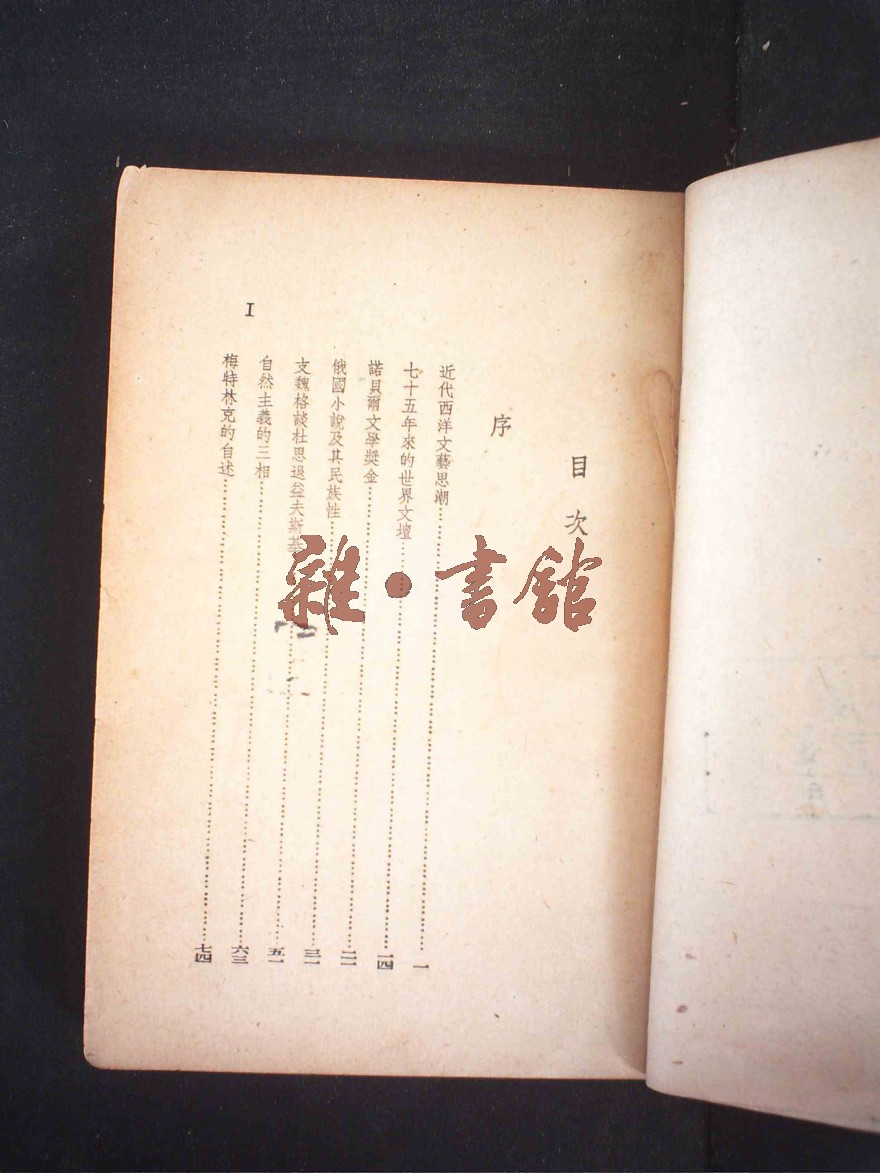 目次
序
近代西洋文藝思潮……一
七十五年來的世界文壇……一四
諾貝爾文學獎金……二二
俄國小說及其民族性……三一
支魏格談杜思退益夫斯基……五一
自然主義的三相……六三
梅特林克的自述……七四
I
雜·書館